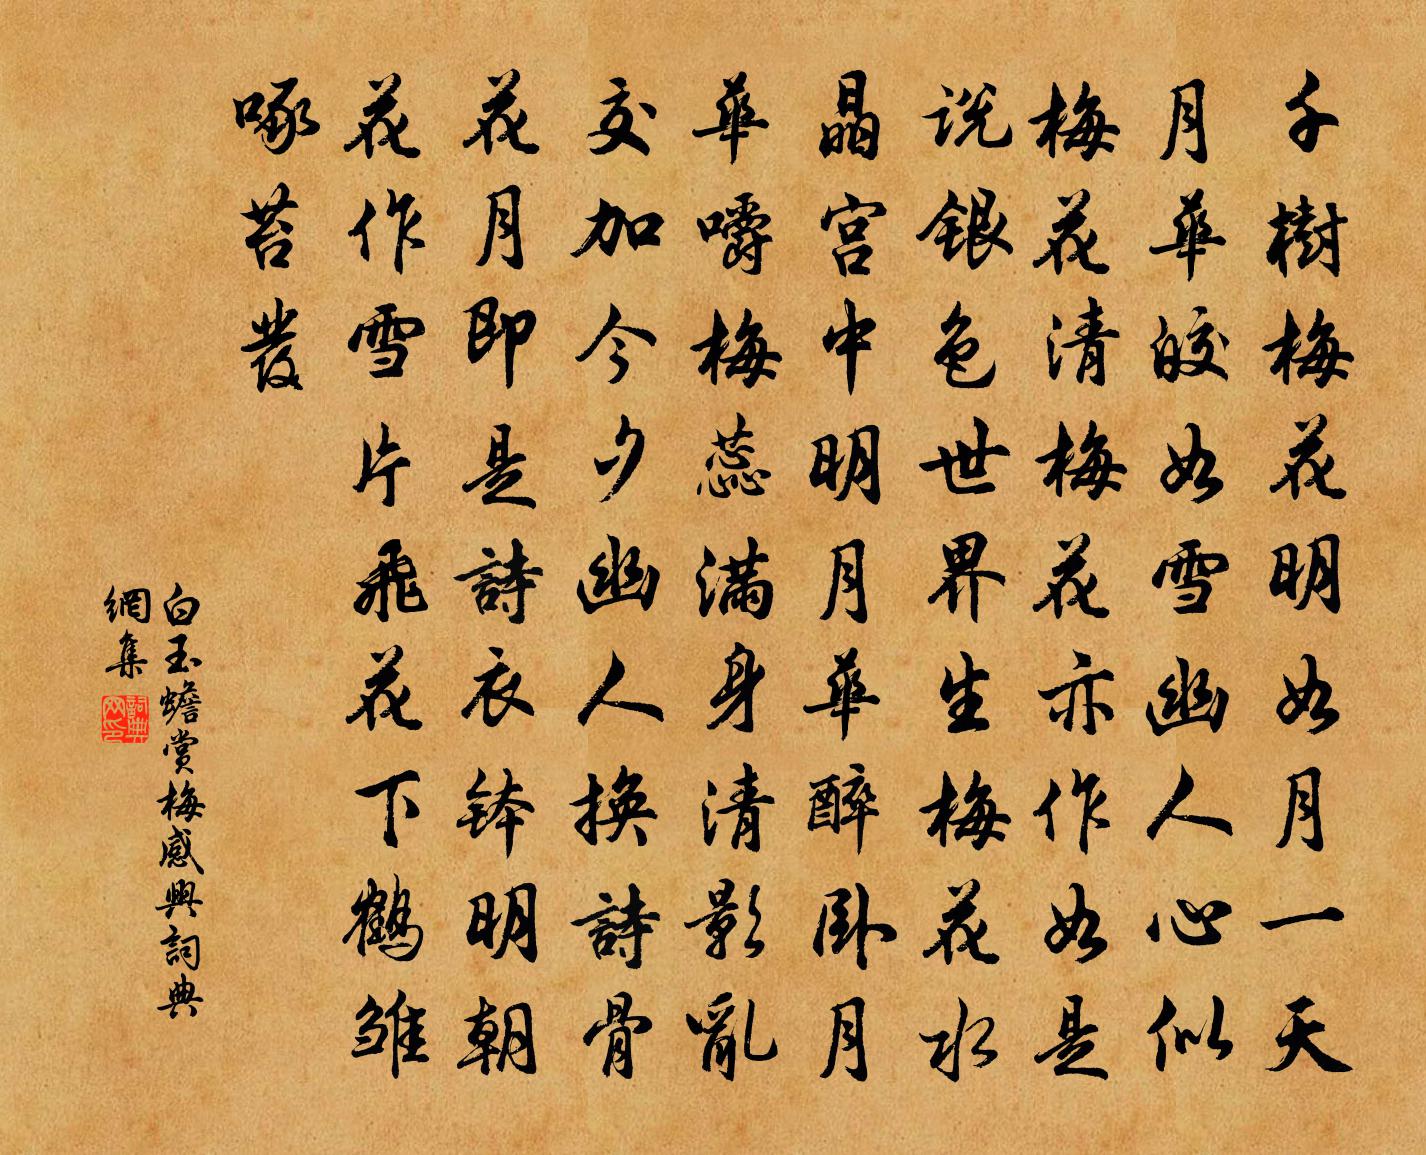 千樹梅花明如月一天
月華皎如雪幽人心似
梅花清梅花亦作如是
說銀色世界生梅花水
晶宮中明月華醉臥月
華嚼梅蕊滿身清影亂
交加今夕幽人換詩骨
花月即是詩衣鉢明朝
花作雪片飛花下鶴雛
啄苔發
白玉蟾賞梅感興詞典
網集
詞典網印